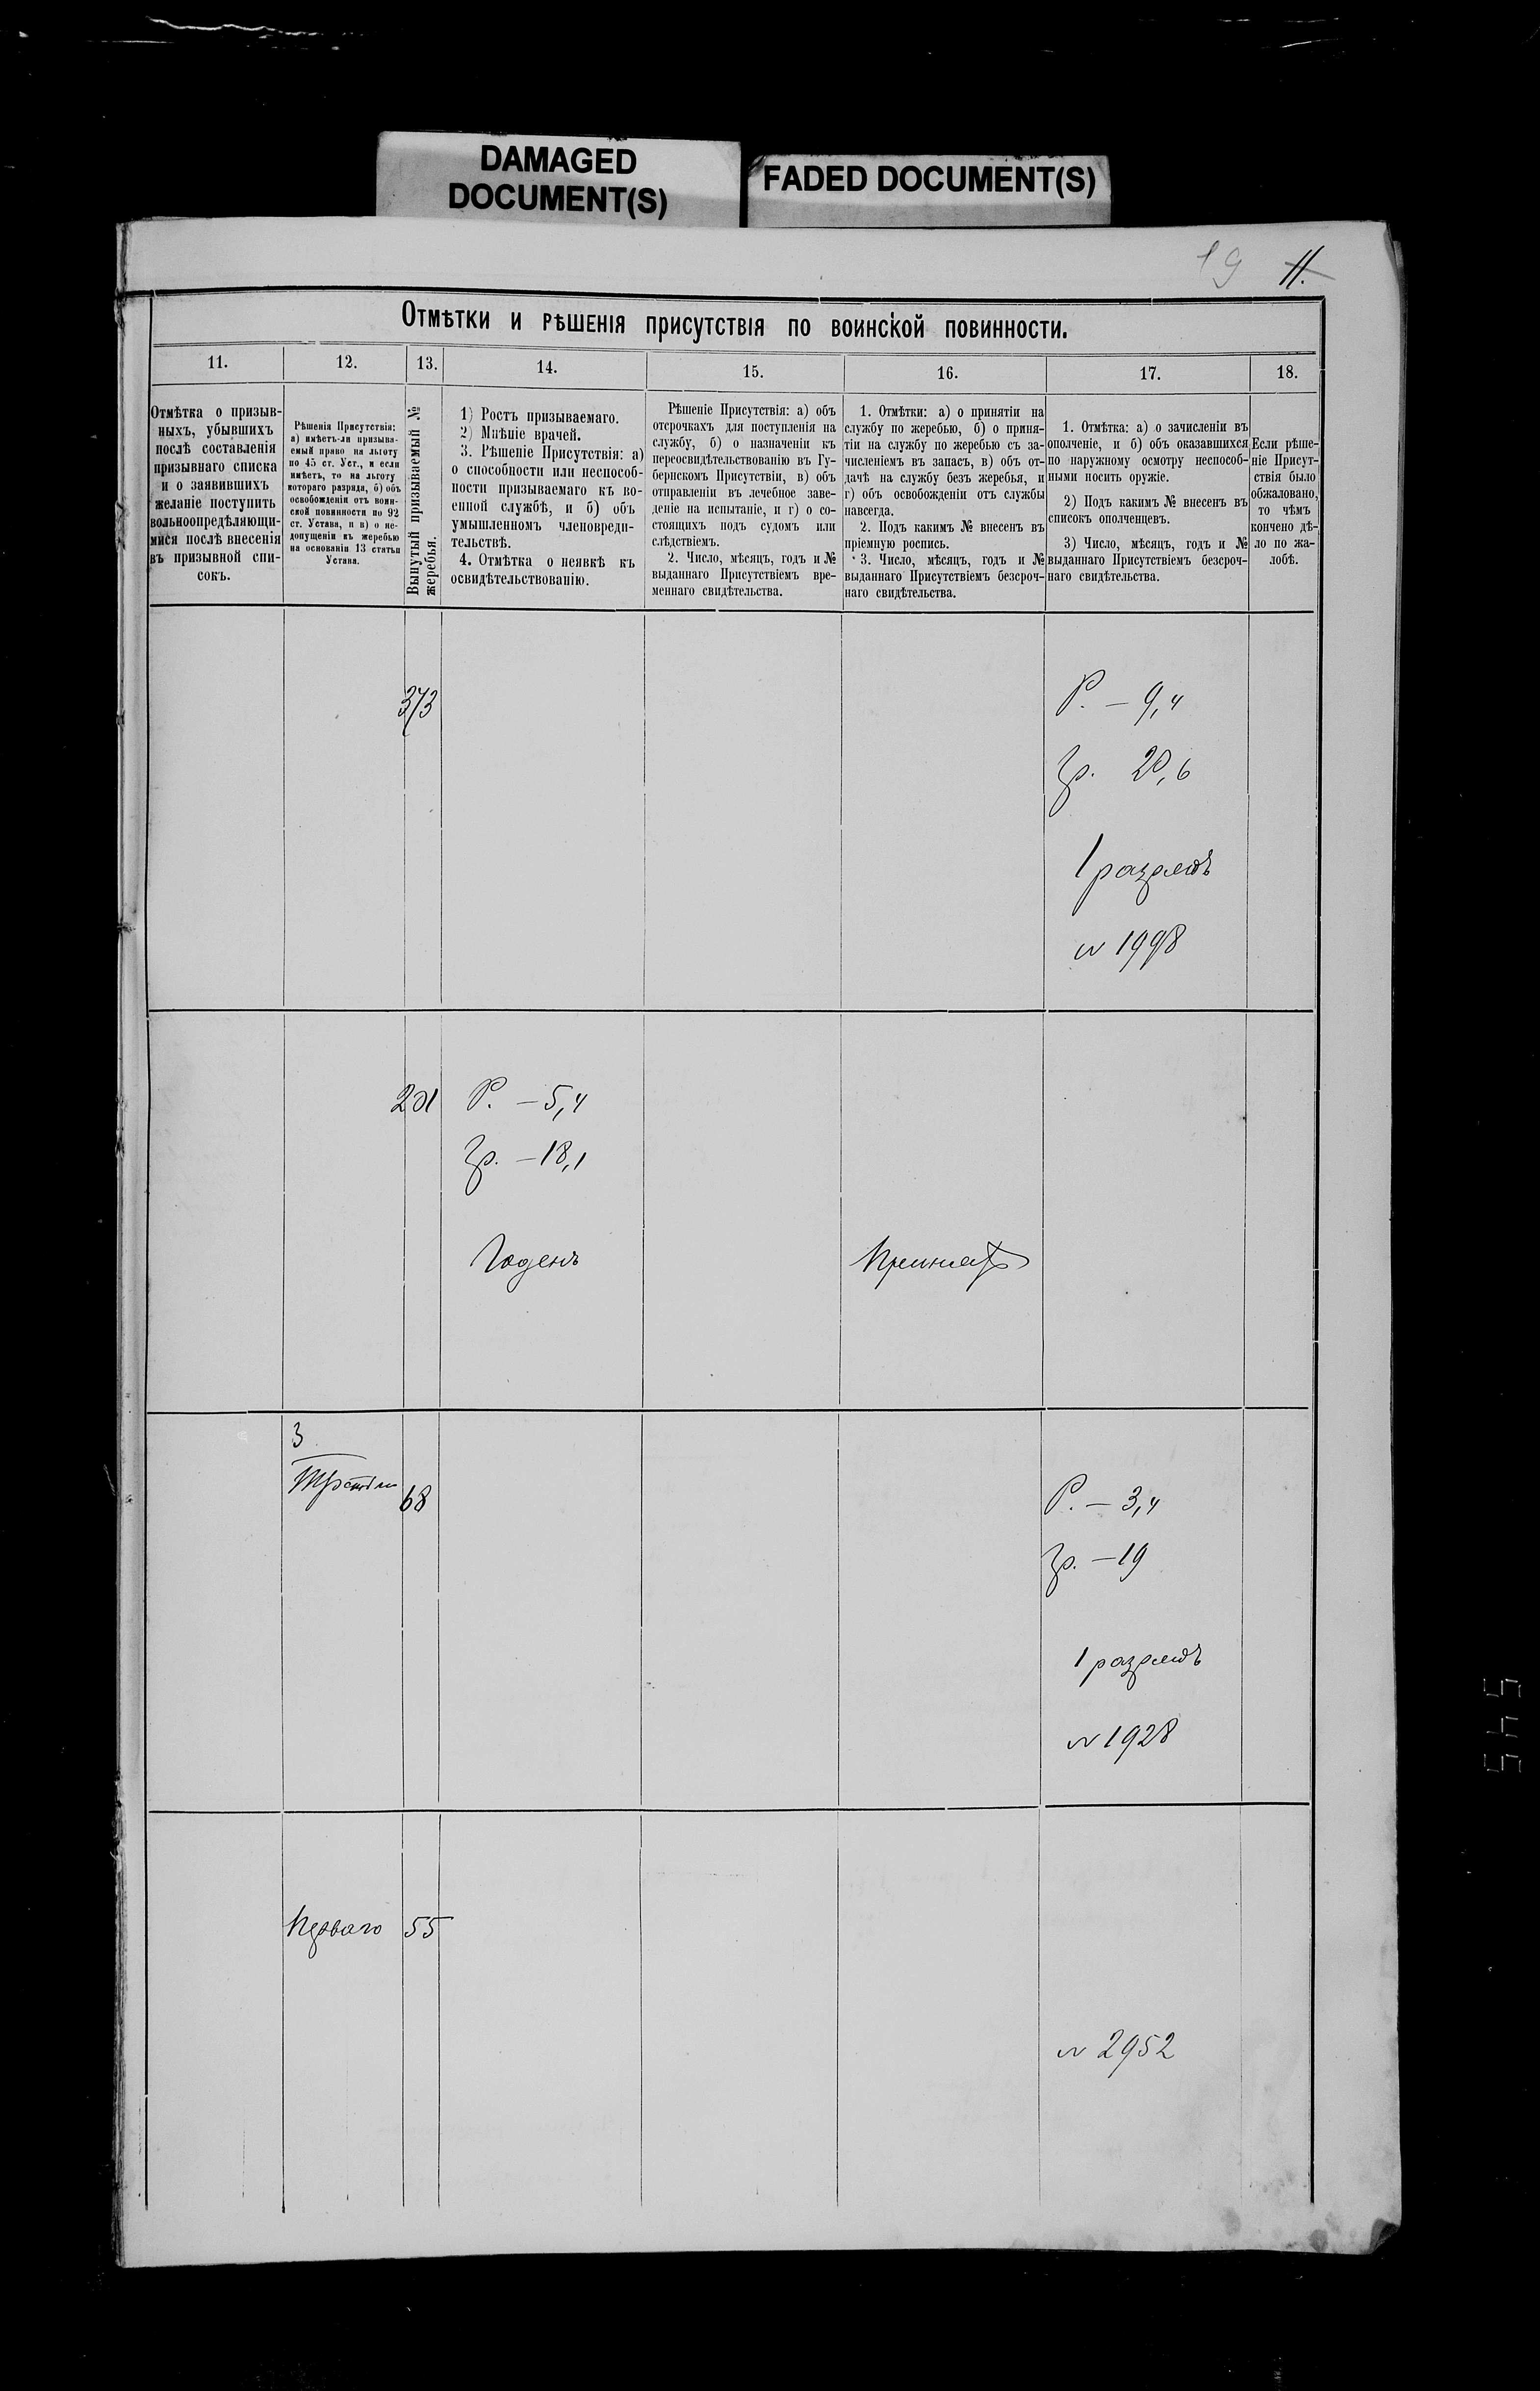 DAMAGED
DOCUMENT(S)
FADED DOCUMENT(S)
19 11.
Отмѣтки и рѣшенія присутствія по воинской повинности.
11. 12. 13. 14. 15. 16. 17. 18.
Отмѣтка о призыв-
ныхъ, убывшихъ
послѣ составленія
призывнаго списка
и о заявившихъ
желаніе поступить
вольноопредѣляющи-
мися послѣ внесенія
въ призывной спи-
сокъ.
Рѣшенія Присутствія:
а) имѣетъ-ли призыва-
емый право на льготу
по 45 ст. Уст., и если
имѣетъ, то на льготу
котораго разряда, б) объ
освобожденіи отъ воин-
ской повинности по 92
ст. Устава, и в) о не-
допущеніи къ жеребью
на основаніи 13 статьи
Устава.
Вынутый призываемый №
жеребья.
1) Ростъ призываемаго.
2) Мнѣніе врачей.
3. Рѣшеніе Присутствія: а)
о способности или неспособ-
ности призываемаго къ во-
енной службѣ, и б) объ
умышленномъ членовреди-
тельствѣ.
4. Отмѣтка о неявкѣ къ
освидѣтельствованію.
Рѣшеніе Присутствія: а) объ
отсрочкахъ для поступленія на
службу, б) о назначеніи къ
переосвидѣтельствованію въ Гу-
бернскомъ Присутствіи, в) объ
отправленіи въ лечебное заве-
деніе на испытаніе, и г) о со-
стоящихъ подъ судомъ или
слѣдствіемъ.
2. Число, мѣсяцъ, годъ и №
выданнаго Присутствіемъ вре-
меннаго свидѣтельства.
1. Отмѣтки: а) о принятіи на
службу по жеребью, б) о приня-
тіи на службу по жеребью съ за-
численіемъ въ запасъ, в) объ от-
дачѣ на службу безъ жеребья, и
г) объ освобожденіи отъ службы
навсегда.
2. Подъ какимъ № внесенъ въ
пріемную роспись.
3. Число, мѣсяцъ, годъ и №
выданнаго Присутствіемъ безсроч-
наго свидѣтельства.
1. Отмѣтка: а) о зачисленіи въ
ополченіе, и б) объ оказавшихся
по наружному осмотру неспособ-
ными носить оружіе.
2) Подъ какимъ № внесенъ въ
списокъ ополченцевъ.
3) Число, мѣсяцъ, годъ и №
выданнаго Присутствіемъ безсроч-
наго свидѣтельства.
Если рѣше-
ніе Присут-
ствія было
обжаловано,
то чѣмъ
кончено дѣ-
ло по жа-
лобѣ.
373 Р. — 9,4
Гр. 20,6
1 разрядъ
№ 1998
201 Р. — 5,4
Гр. — 18,1
Годенъ Принятъ
3
68 Р. — 3,4
Гр. — 19
1 разрядъ
№ 1928
Перваго 55
№ 2952
545